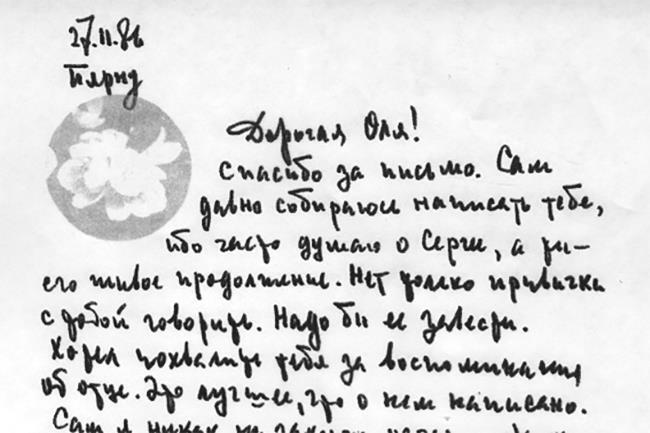 27.11.86
Пярну
Дорогая Оля!
Спасибо за письмо. Сам
давно собираюсь написать тебе,
ибо часто думаю о Сергее, а ты –
его живое продолжение. Нет только привычки
с тобой говорить. Надо бы ее завести.
Хотел похвалить тебя за воспоминания
об отце. Это лучшее, что о нем написано.
Сам я никак не